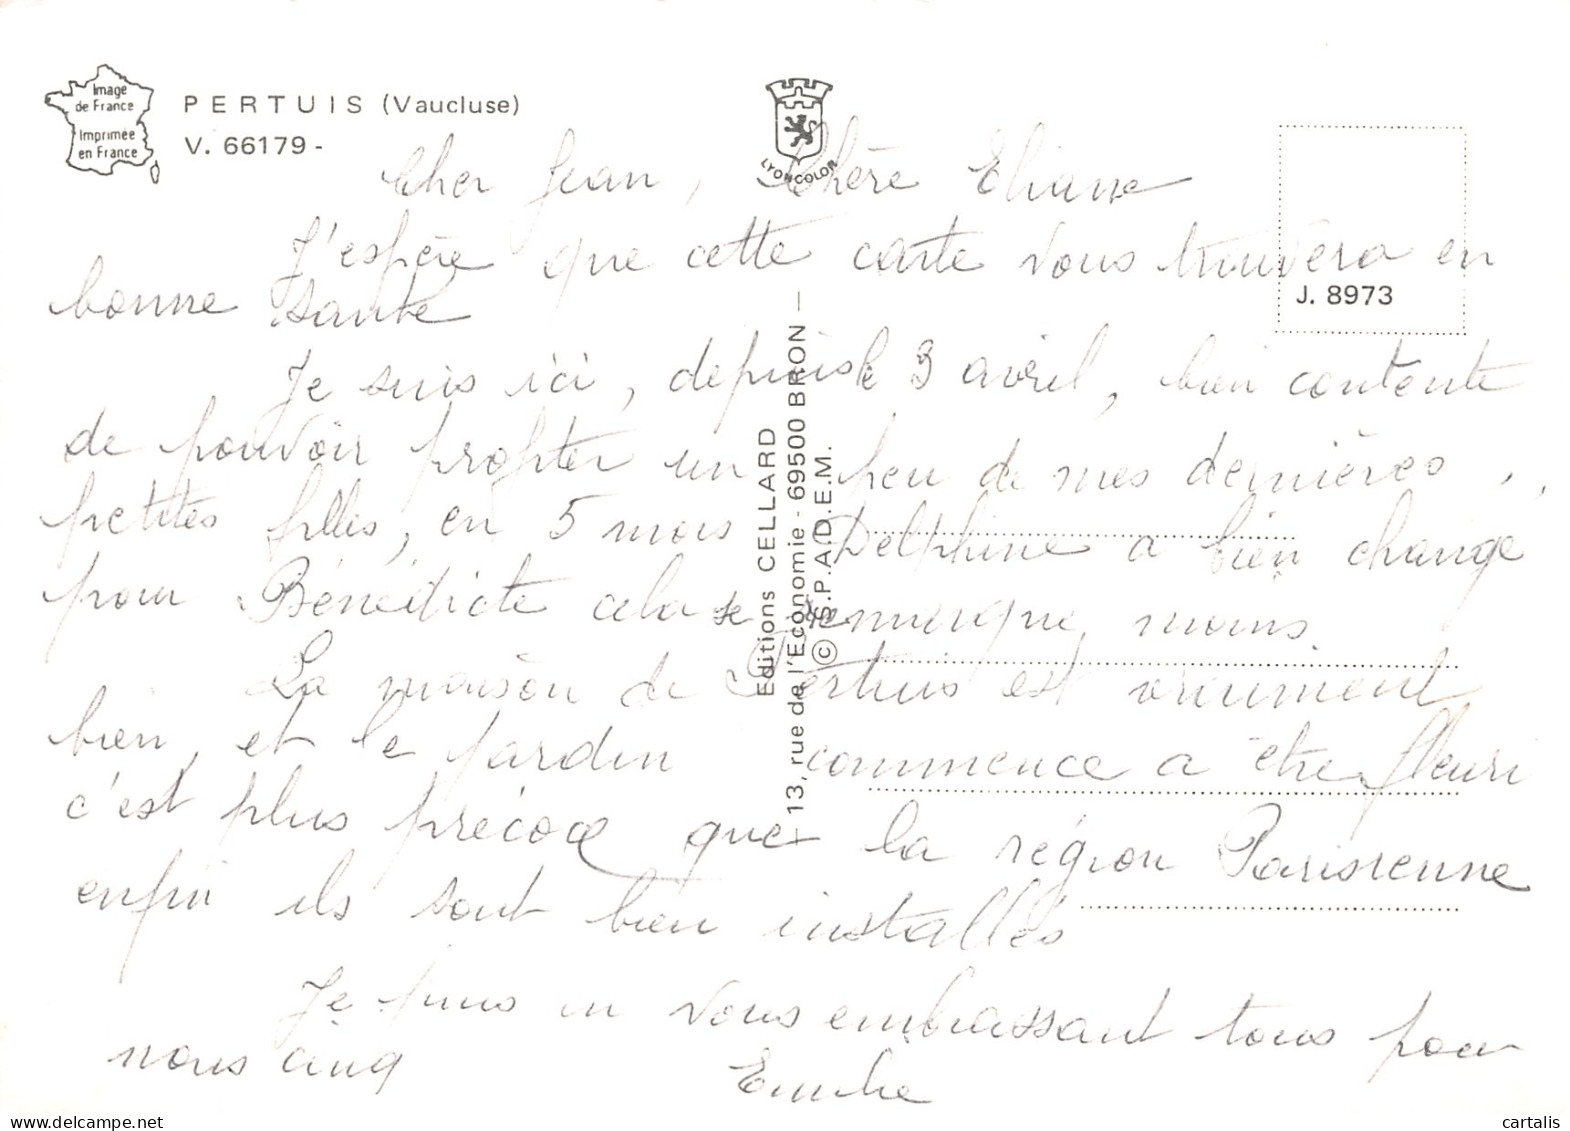 Image
de France
Imprimée
en France
PERTUIS (Vaucluse)
V. 66179 -
LYONCOLOR
J. 8973
Editions CELLARD
13, rue de l'Economie - 69500 BRON —
© S.P.A.D.E.M.
Cher Jean, Chère Eliane
J'espère que cette carte vous trouvera en
bonne santé
Je suis ici, depuis le 3 avril, bien contente
de pouvoir profiter un peu de mes dernières
petites filles, en 5 mois Delphine a bien changé
pour Bénédicte cela se remarque moins.
La maison de Pertuis est vraiment
bien, et le jardin commence a être fleuri
c'est plus précoce que la région Parisienne
enfin ils sont bien installés
Je finis en vous embrassant tous pour
nous cinq
cartalis